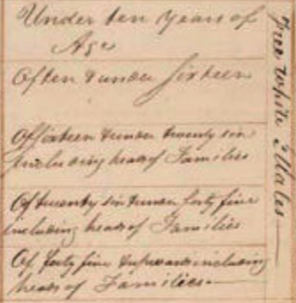 Under ten years of
Age
Of ten & under sixteen
Of sixteen & under twenty six
Including heads of Families
Of twenty six & under forty five
including heads of Families
Of forty five & upwards including
heads of Families
Free White Males